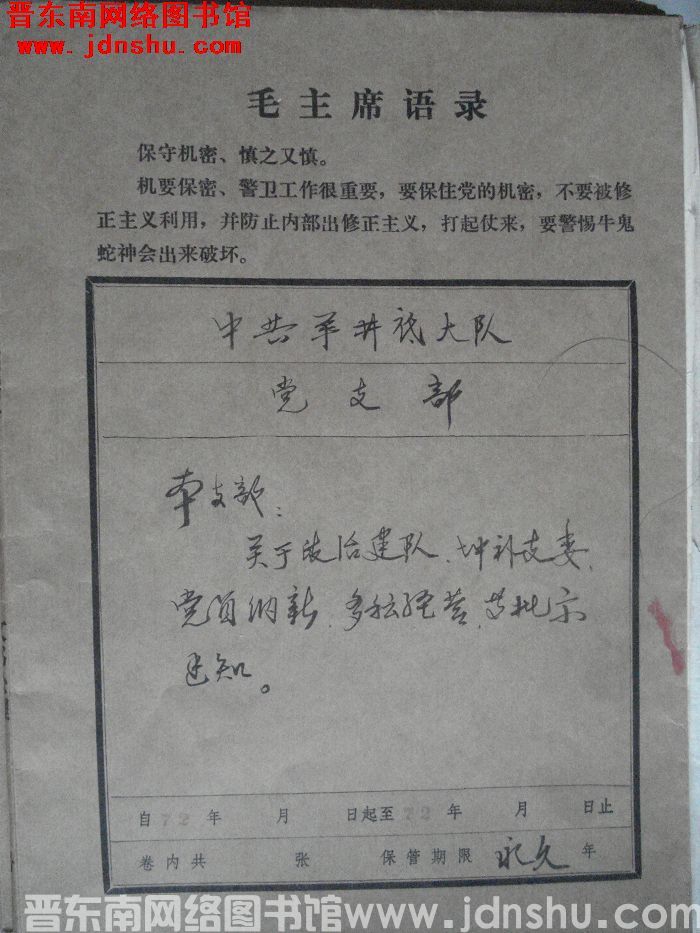 晋东南网络图书馆
www.jdnshu.com
毛主席语录
保守机密、慎之又慎。
机要保密、警卫工作很重要，要保住党的机密，不要被修
正主义利用，并防止内部出修正主义，打起仗来，要警惕牛鬼
蛇神会出来破坏。
中共羊井底大队
党支部
本支部：
关于政治建队、补支委、
党员纳新、多种经营、批示
通知。
自72年 月 日起至72年 月 日止
卷内共 张 保管期限 永久 年
晋东南网络图书馆www.jdnshu.com